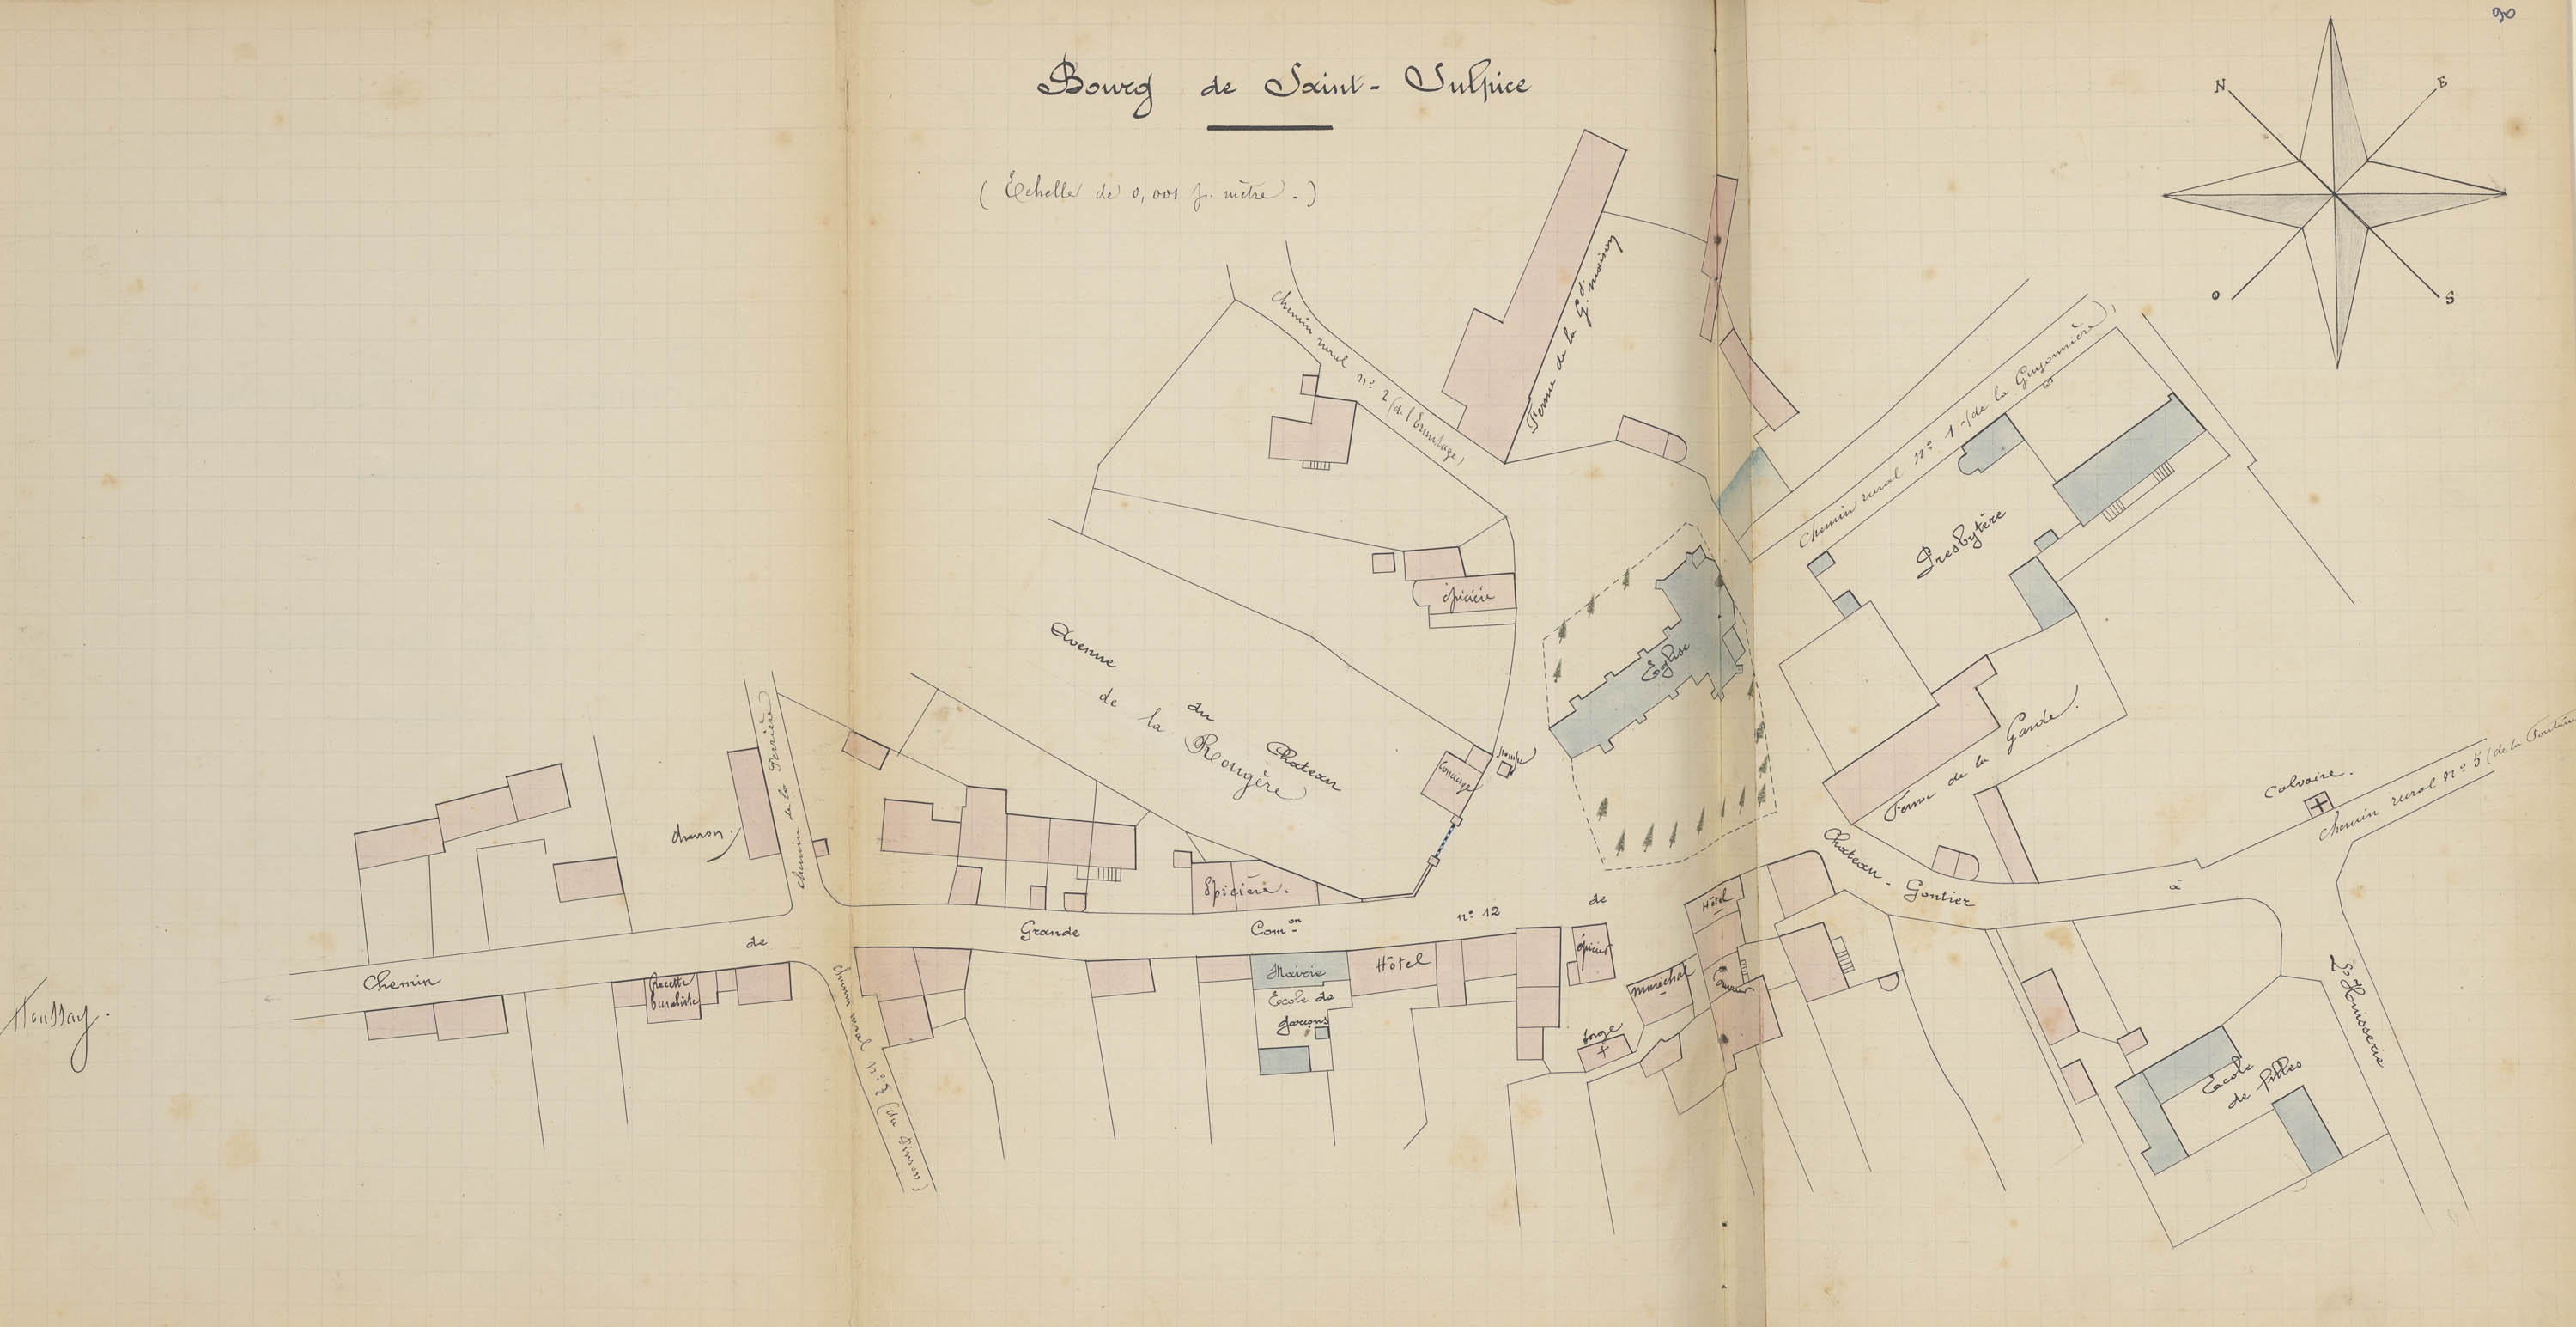 90
Bourg de Saint-Sulpice
(Echelle de 0,001 p. mètre.)
N
E
O
S
Chemin rural n° 2 (de l'Ermitage)
Ferme de la Gde maison
Chemin rural n° 1 (de la Guyonnière)
Presbytère
épicier
Eglise
Avenue du Chateau
de la Rongère
Concierge
Pompe
Ferme de la Garde.
Calvaire.
Chemin rural n° 5 (de la Fontaine
charron.
chemin de la Perrière
Epicière.
Chemin de Grande Comon n° 12 de Chateau-Gontier à L'Huisserie
Houssay.
Recette
buraliste
chemin rural n° 3 (du Pinson)
Mairie
Ecole de
garçons
Hôtel
épicier
Hôtel
maréchal
forge
Ecole
de filles